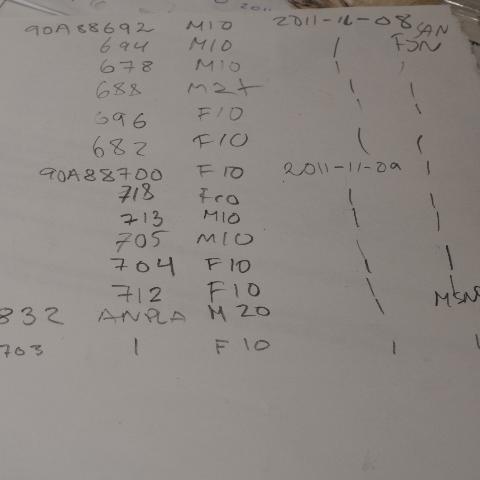 2011
90A88692 M10 2011-11-08 SAN
694 M10 | FSN
678 M10 | |
688 M2+ | |
696 F10 | |
682 F10 | |
90A88700 F10 2011-11-09 |
718 F10 | |
713 M10 | |
705 M10 |
704 F10 | |
712 F10 | MSN
832 ANPLA M20
703 | F10 | |